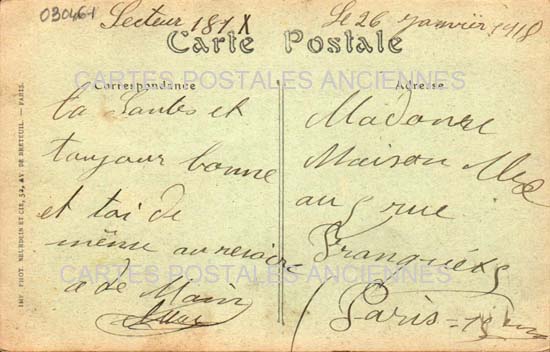 030461
Secteur 181
Le 26 janvier 1918
Carte Postale
CARTES POSTALES ANCIENNES
Correspondance
ta Santes et
toujour bonne
et toi de
même au revoir
a de Main
Adresse
Madame
Maison
au 5 rue
Franquet
Paris - 15
CARTES POSTALES ANCIENNES
IMP. PHOT. NEURDEIN ET CIE, 52, AV. DE BRETEUIL. — PARIS.